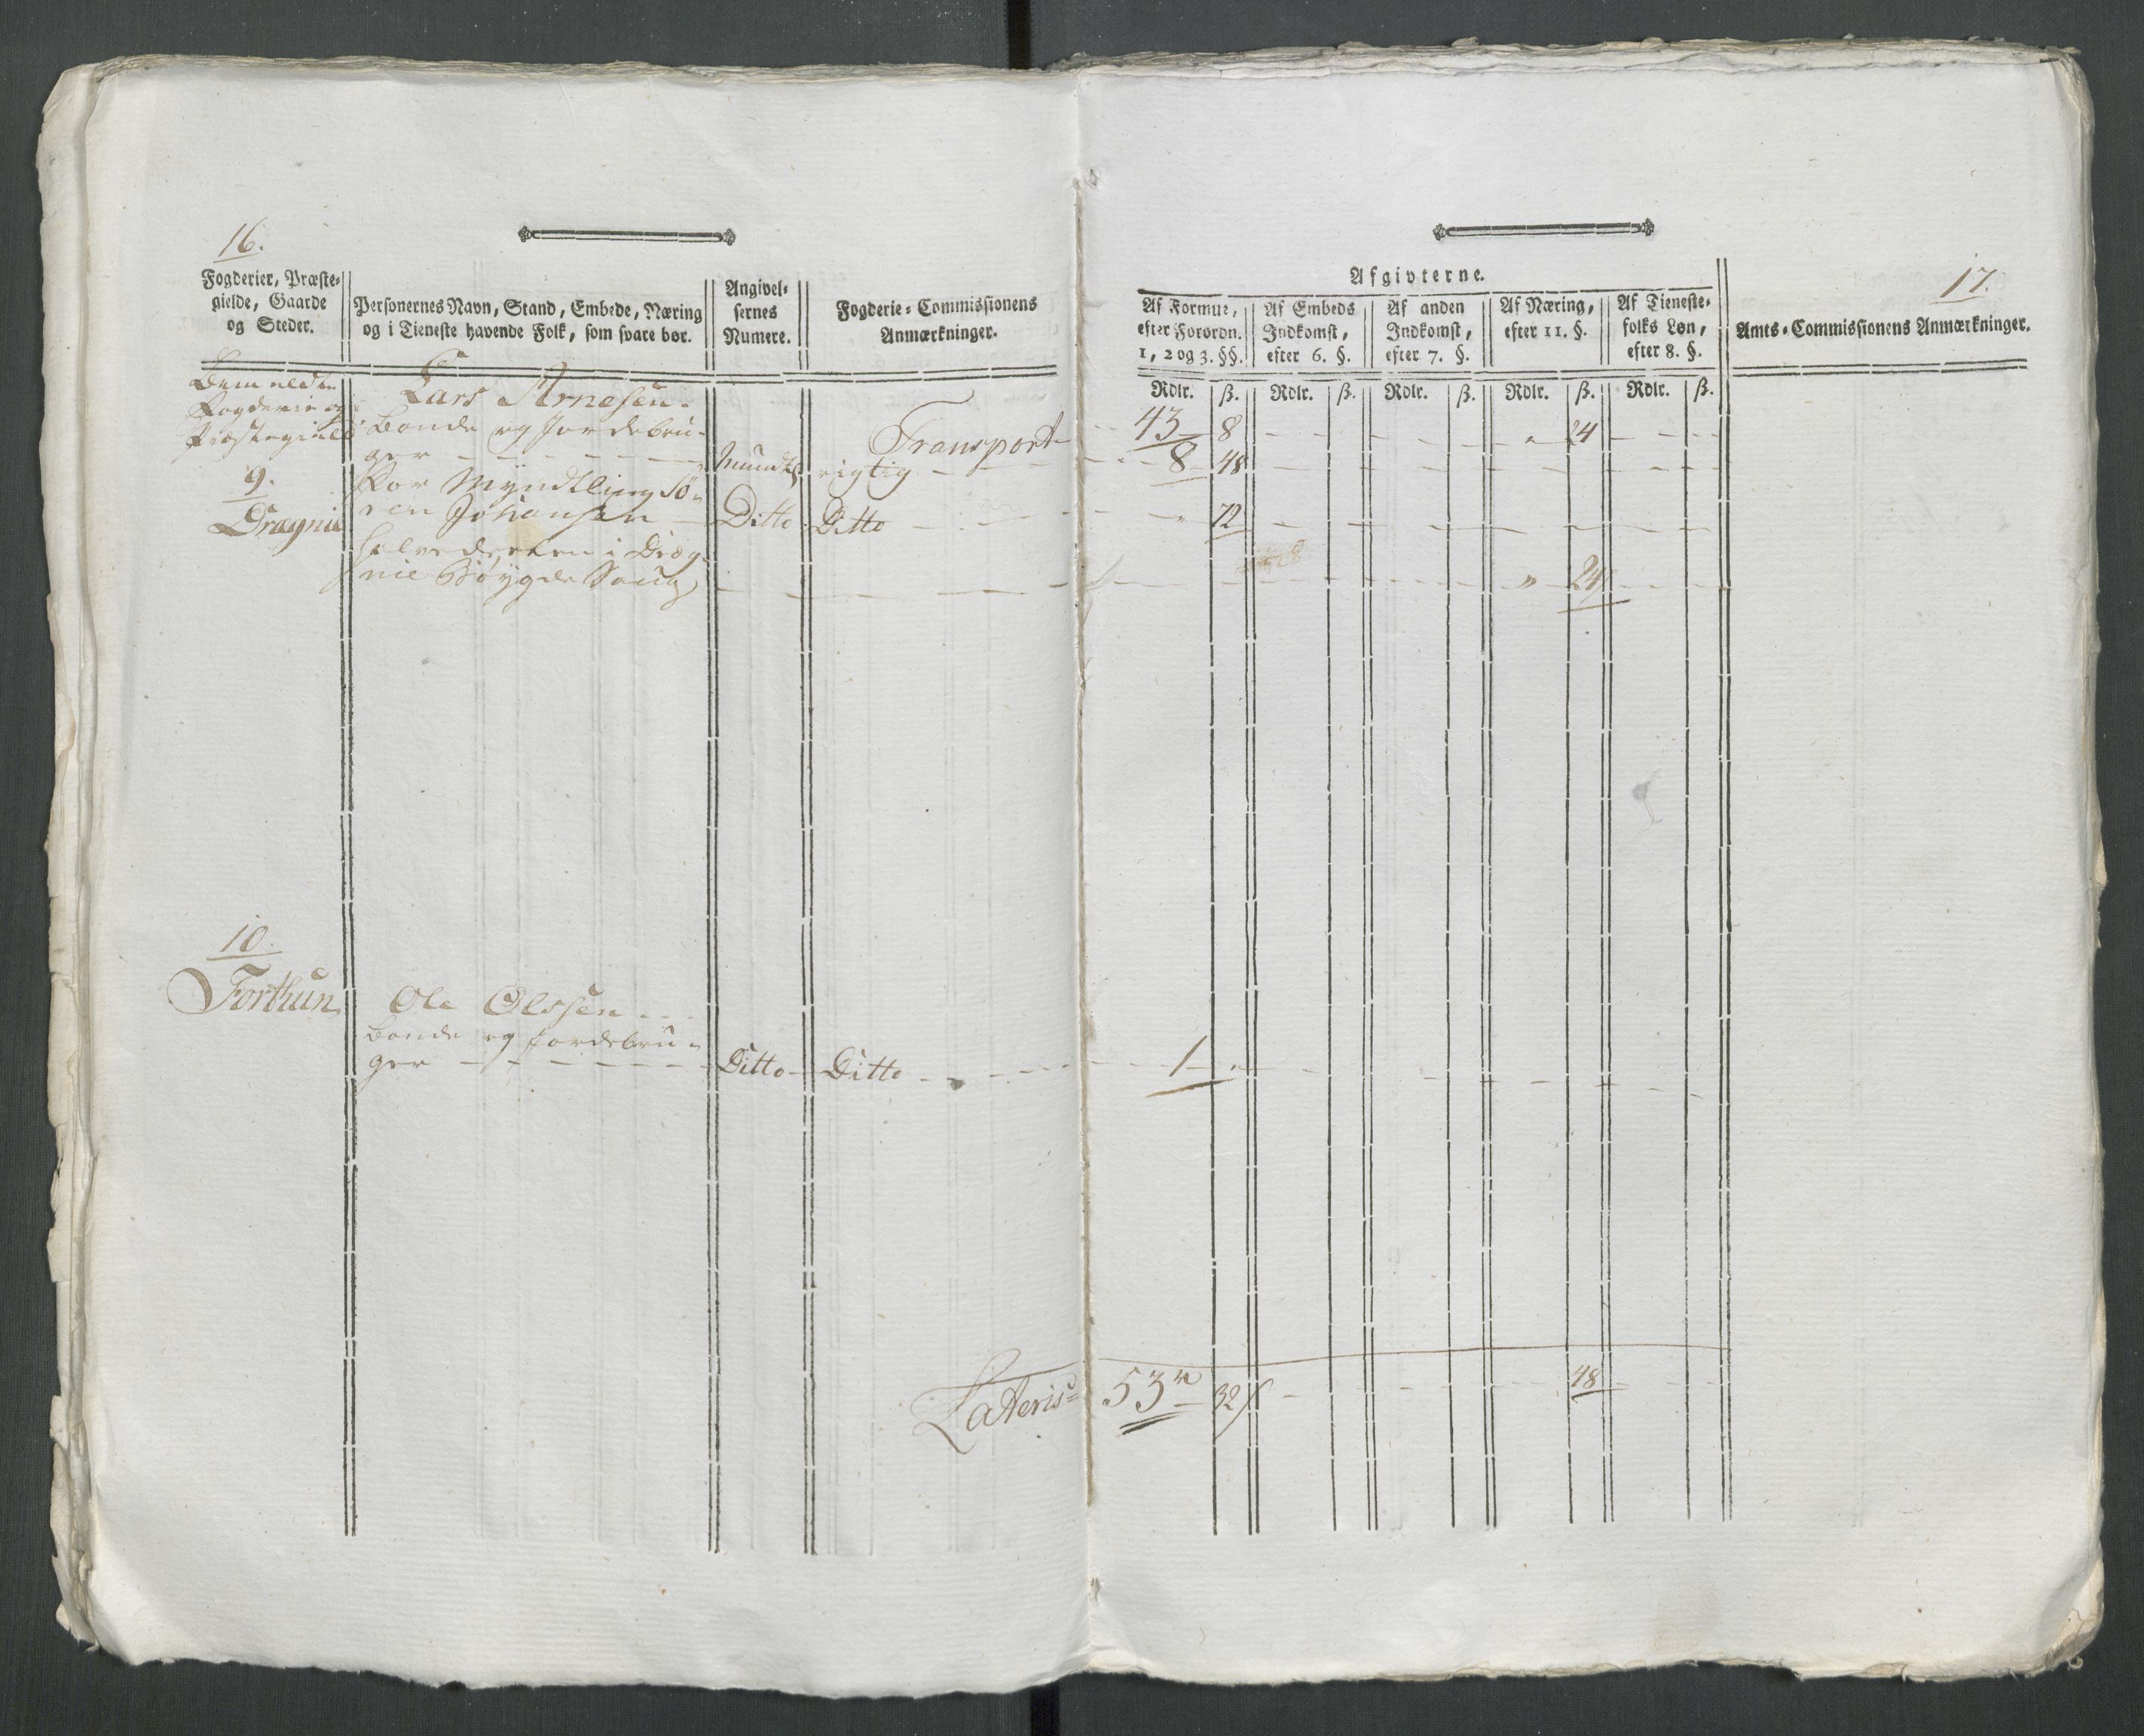 16.
Fogderier, Præste-
gielde, Gaarde
og Steder.
Personernes Navn, Stand, Embede, Næring
og i Tieneste havende Folk, som svare bør.
Angivel-
sernes
Numere.
Fogderie-Commissionens
Anmærkninger.
Bemeldte
Fogderie og
Præstegield
Lars Arnesen
Bonde og Jordebru-
ger
Mundtl.
rigtig
Transport
9.
Dragnie
For Myndtling Sø-
ren Johansen
Ditto
Ditto
i Dræg-
nie Bøygde Saug
10.
Forthun
Ole Olssen
Bonde og Jordebru-
ger
Ditto
Ditto
Lateris
17.
Afgivterne.
Af Formue,
efter Forordn.
1, 2 og 3. §§.
Af Embeds
Indkomst,
efter 6. §.
Af anden
Indkomst,
efter 7. §.
Af Næring,
efter 11. §.
Af Tieneste-
folks Løn,
efter 8. §.
Amts-Commissionens Anmærkninger.
Rdlr. ß. Rdlr. ß. Rdlr. ß. Rdlr. ß. Rdlr. ß.
43 8 " 24
8 48
" 72
" 24
1 "
53 32 48